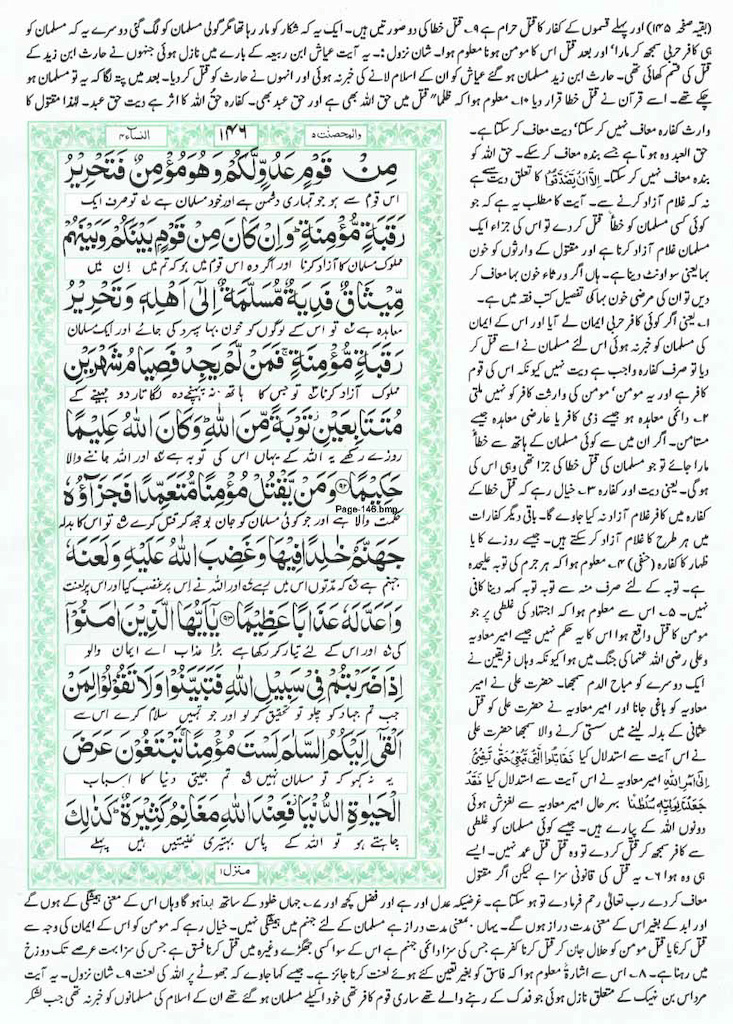 (بقیہ صفحہ ۱۴۵) اور پہلے قسموں کے کفار کا قتل حرام ہے ۹۔ قتل خطا کی دو صورتیں ہیں۔ ایک یہ کہ شکار کو مار رہا تھا مگر گولی مسلمان کو لگ گئی دوسرے یہ کہ مسلمان کو
ہی کافر حربی سمجھ کر مارا' اور بعد قتل اس کا مومن ہونا معلوم ہوا۔ شان نزول :۔ یہ آیت عیاش ابن ربیعہ کے بارے میں نازل ہوئی جنہوں نے حارث ابن زید کے
قتل کی قسم کھائی تھی۔ حارث ابن زید مسلمان ہو گئے عیاش کو ان کے اسلام لانے کی خبر نہ ہوئی اور انہوں نے حارث کو قتل کر دیا۔ بعد میں پتہ لگا کہ یہ تو مسلمان ہو
چکے تھے۔ اسے قرآن نے قتل خطا قرار دیا ۱۰۔ معلوم ہوا کہ ظلماً" قتل میں حق اللہ بھی ہے اور حق عبد بھی۔ کفارہ حق اللہ کا اثر ہے دیت حق عبد۔ لہٰذا مقتول کا
وارث کفارہ معاف نہیں کر سکتا' دیت معاف کر سکتا ہے۔
حق العبد وہ ہوتا ہے جسے بندہ معاف کر سکے۔ حق اللہ کو
بندہ معاف نہیں کر سکتا۔ اِلَّا اَنْ یَّصَّدَّقُوْا کا تعلق دیت سے ہے
نہ کہ غلام آزاد کرنے سے۔ آیت کا مطلب یہ ہے کہ جو
کوئی کسی مسلمان کو خطاً قتل کر دے تو اس کی جزاء ایک
مسلمان غلام آزاد کرنا ہے اور مقتول کے وارثوں کو خون
بہا یعنی سو اونٹ دینا ہے۔ ہاں اگر ورثاء خون بہا معاف کر
دیں تو ان کی مرضی خون بہا کی تفصیل کتب فقہ میں ہے۔
۱۔ یعنی اگر کوئی کافر حربی ایمان لے آیا اور اس کے ایمان
کی مسلمان کو خبر نہ ہوئی اس لئے مسلمان نے اسے قتل کر
دیا تو صرف کفارہ واجب ہے دیت نہیں کیونکہ اس کی قوم
کافر ہے اور یہ مومن' مومن کی وراثت کافر کو نہیں ملتی
۲۔ دائمی معاہدہ ہو جیسے ذمی کافر یا عارضی معاہدہ جیسے
مستامن۔ اگر ان میں سے کوئی مسلمان کے ہاتھ سے خطاً
مارا جائے تو جو مسلمان کی قتل خطا کی جزا تھی وہی اس کی
ہو گی۔ یعنی دیت اور کفارہ ۳۔ خیال رہے کہ قتل خطا کے
کفارہ میں کافر غلام آزاد نہ کیا جاوے گا۔ باقی دیگر کفارات
میں ہر طرح کا غلام آزاد کر سکتے ہیں۔ جیسے روزے کا یا
ظہار کا کفارہ (حنفی) ۴۔ معلوم ہوا کہ ہر جرم کی توبہ علیحدہ
ہے۔ توبہ کے لئے صرف منہ سے توبہ توبہ کہہ دینا کافی
نہیں۔ ۵۔ اس سے معلوم ہوا کہ اجتہاد کی غلطی پر جو
مومن کا قتل واقع ہوا اس کا یہ حکم نہیں جیسے امیر معاویہ
و علی رضی اللہ عنہما کی جنگ میں ہوا کیونکہ وہاں فریقین نے
ایک دوسرے کو مباح الدم سمجھا۔ حضرت علی نے امیر
معاویہ کو باغی جانا اور امیر معاویہ نے حضرت علی کو قتل
عثمانی کے بدلہ لینے میں سستی کرنے والا سمجھا حضرت علی
نے اس آیت سے استدلال کیا فَقَاتِلُوا الَّتِیْ تَبْغِیْ حَتّٰی تَفِیْٓءَ
اِلٰٓی اَمْرِ اللّٰہِ امیر معاویہ نے اس آیت سے استدلال کیا فَقَدْ
جَعَلْنَا لِوَلِیِّہٖ سُلْطٰنًا بہر حال امیر معاویہ سے لغزش ہوئی
دونوں اللہ کے پیارے ہیں۔ جیسے کوئی مسلمان کو غلطی
سے کافر سمجھ کر قتل کر دے تو وہ قتل قتل عمد نہیں۔ ایسے
ہی وہ ہوا ۶۔ یہ قتل کی قانونی سزا ہے لیکن اگر مقتول
والمحصنت ۵
۱۴۶
النساء ۴
مِنْ قَوْمٍ عَدُوٍّ لَّكُمْ وَهُوَ مُؤْمِنٌ فَتَحْرِيْرُ
اس قوم سے ہو جو تمہاری دشمن ہے اور خود مسلمان ہے تو صرف ایک
رَقَبَةٍ مُّؤْمِنَةٍ ؕ وَاِنْ كَانَ مِنْ قَوْمٍۭ بَيْنَكُمْ وَبَيْنَهُمْ
مملوک مسلمان کا آزاد کرنا اور اگر وہ اس قوم میں ہو کہ تم میں ان میں
مِّيْثَاقٌ فَدِيَةٌ مُّسَلَّمَةٌ اِلٰٓى اَهْلِهٖ وَتَحْرِيْرُ
معاہدہ ہے تو اس کے لوگوں کو خون بہا سپرد کی جائے اور ایک مسلمان
رَقَبَةٍ مُّؤْمِنَةٍ ۚ فَمَنْ لَّمْ يَجِدْ فَصِيَامُ شَهْرَيْنِ
مملوک آزاد کرنا تو جس کا ہاتھ نہ پہنچے وہ لگاتار دو مہینے کے
مُتَتَابِعَيْنِ تَوْبَةً مِّنَ اللّٰهِ ؕ وَكَانَ اللّٰهُ عَلِيْمًا
روزے رکھے یہ اللہ کے یہاں اس کی توبہ ہے اور اللہ جاننے والا
حَكِيْمًا ﴿۹۲﴾ وَمَنْ يَّقْتُلْ مُؤْمِنًا مُّتَعَمِّدًا فَجَزَآؤُهٗ
Page-146.bmp
حکمت والا ہے اور جو کوئی مسلمان کو جان بوجھ کر قتل کرے تو اس کا بدلہ
جَهَنَّمُ خٰلِدًا فِيْهَا وَغَضِبَ اللّٰهُ عَلَيْهِ وَلَعَنَهٗ
جہنم ہے کہ مدتوں اس میں رہے اور اللہ نے اس پر غضب کیا اور اس پر لعنت
وَاَعَدَّ لَهٗ عَذَابًا عَظِيْمًا ﴿۹۳﴾ يٰٓاَيُّهَا الَّذِيْنَ اٰمَنُوْٓا
کی اور اس کے لئے تیار کر رکھا ہے بڑا عذاب اے ایمان والو
اِذَا ضَرَبْتُمْ فِيْ سَبِيْلِ اللّٰهِ فَتَبَيَّنُوْا وَلَا تَقُوْلُوْا لِمَنْ
جب تم جہاد کو چلو تو تحقیق کر لو اور جو تمہیں سلام کرے اس سے
اَلْقٰٓى اِلَيْكُمُ السَّلٰمَ لَسْتَ مُؤْمِنًا ۚ تَبْتَغُوْنَ عَرَضَ
یہ نہ کہو کہ تو مسلمان نہیں تم جیتی دنیا کا اسباب
الْحَيٰوةِ الدُّنْيَا ۡ فَعِنْدَ اللّٰهِ مَغَانِمُ كَثِيْرَةٌ ؕ كَذٰلِكَ
چاہتے ہو تو اللہ کے پاس بہتیری غنیمتیں ہیں پہلے
منزل ۱
معاف کر دے رب تعالٰی رحم فرما دے تو ہو سکتا ہے۔ غرضیکہ عدل اور ہے اور فضل کچھ اور ۷۔ جہاں خلود کے ساتھ ابدا ہو گا وہاں اس کے معنی ہمیشگی کے ہوں گے
اور ابد کے بغیر اس کے معنی مدت دراز ہوں گے۔ یہاں بمعنی مدت دراز ہے مسلمان کے لئے جہنم میں ہمیشگی نہیں۔ خیال رہے کہ مومن کو اس کے ایمان کی وجہ سے
قتل کرنا یا قتل مومن کو حلال جان کر قتل کرنا کفر ہے جس کی سزا دائمی جہنم ہے اس کے سوا کسی جھگڑے وغیرہ میں قتل کرنا فسق ہے جس کی سزا بہت عرصے تک دوزخ
میں رہنا ہے۔ ۸۔ اس سے اشارۃً معلوم ہوا کہ فاسق کو بغیر تعین کئے ہوئے لعنت کرنا جائز ہے۔ جیسے کہا جاوے کہ جھوٹے پر اللہ کی لعنت ۹۔ شان نزول۔ یہ آیت
مرداس بن نہیک کے متعلق نازل ہوئی جو فدک کے رہنے والے تھے ساری قوم کافر تھی خود اکیلے مسلمان ہو گئے تھے ان کے اسلام کی مسلمانوں کو خبر نہ تھی جب لشکر